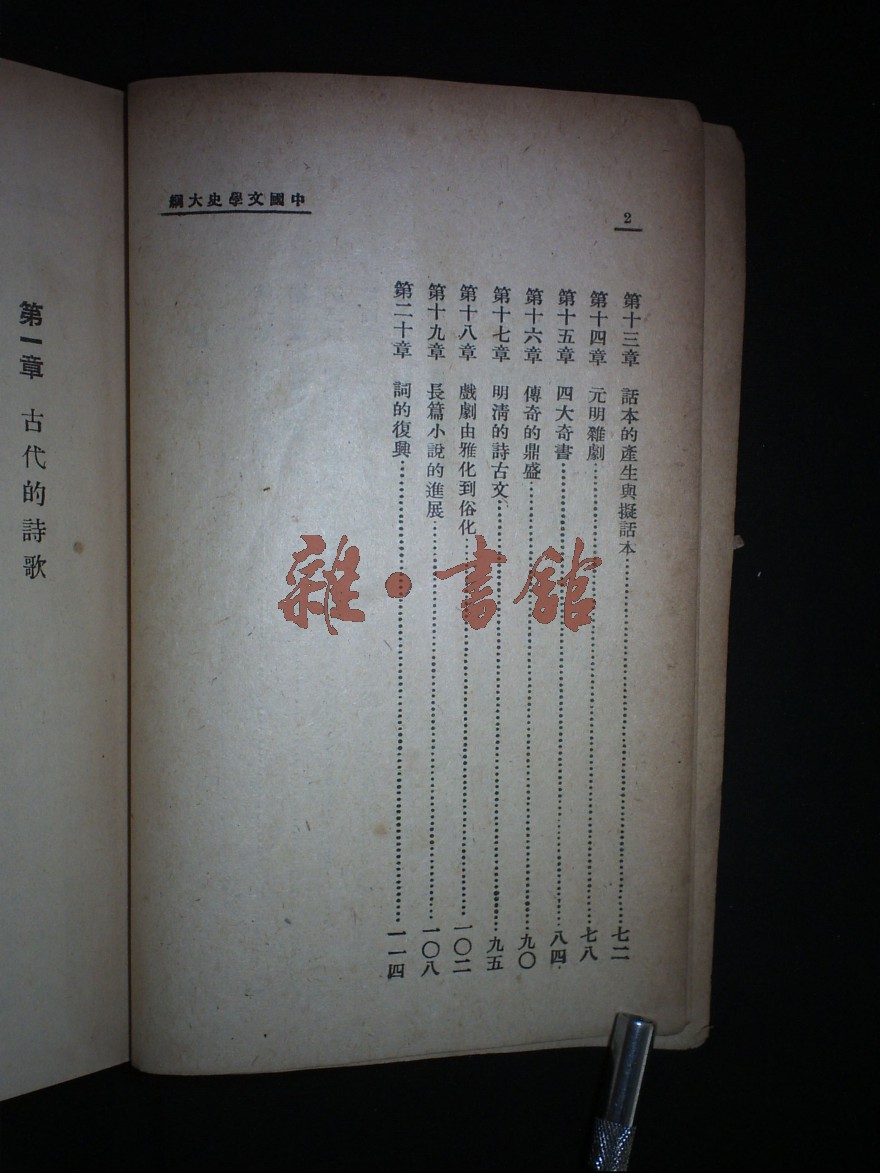 中國文學史大綱
2
第十三章 話本的產生與擬話本……七二
第十四章 元明雜劇……七八
第十五章 四大奇書……八四
第十六章 傳奇的鼎盛……九〇
第十七章 明清的詩古文……九五
第十八章 戲劇由雅化到俗化……一〇二
第十九章 長篇小說的進展……一〇八
第二十章 詞的復興……一一四
第一章 古代的詩歌
雜·書館